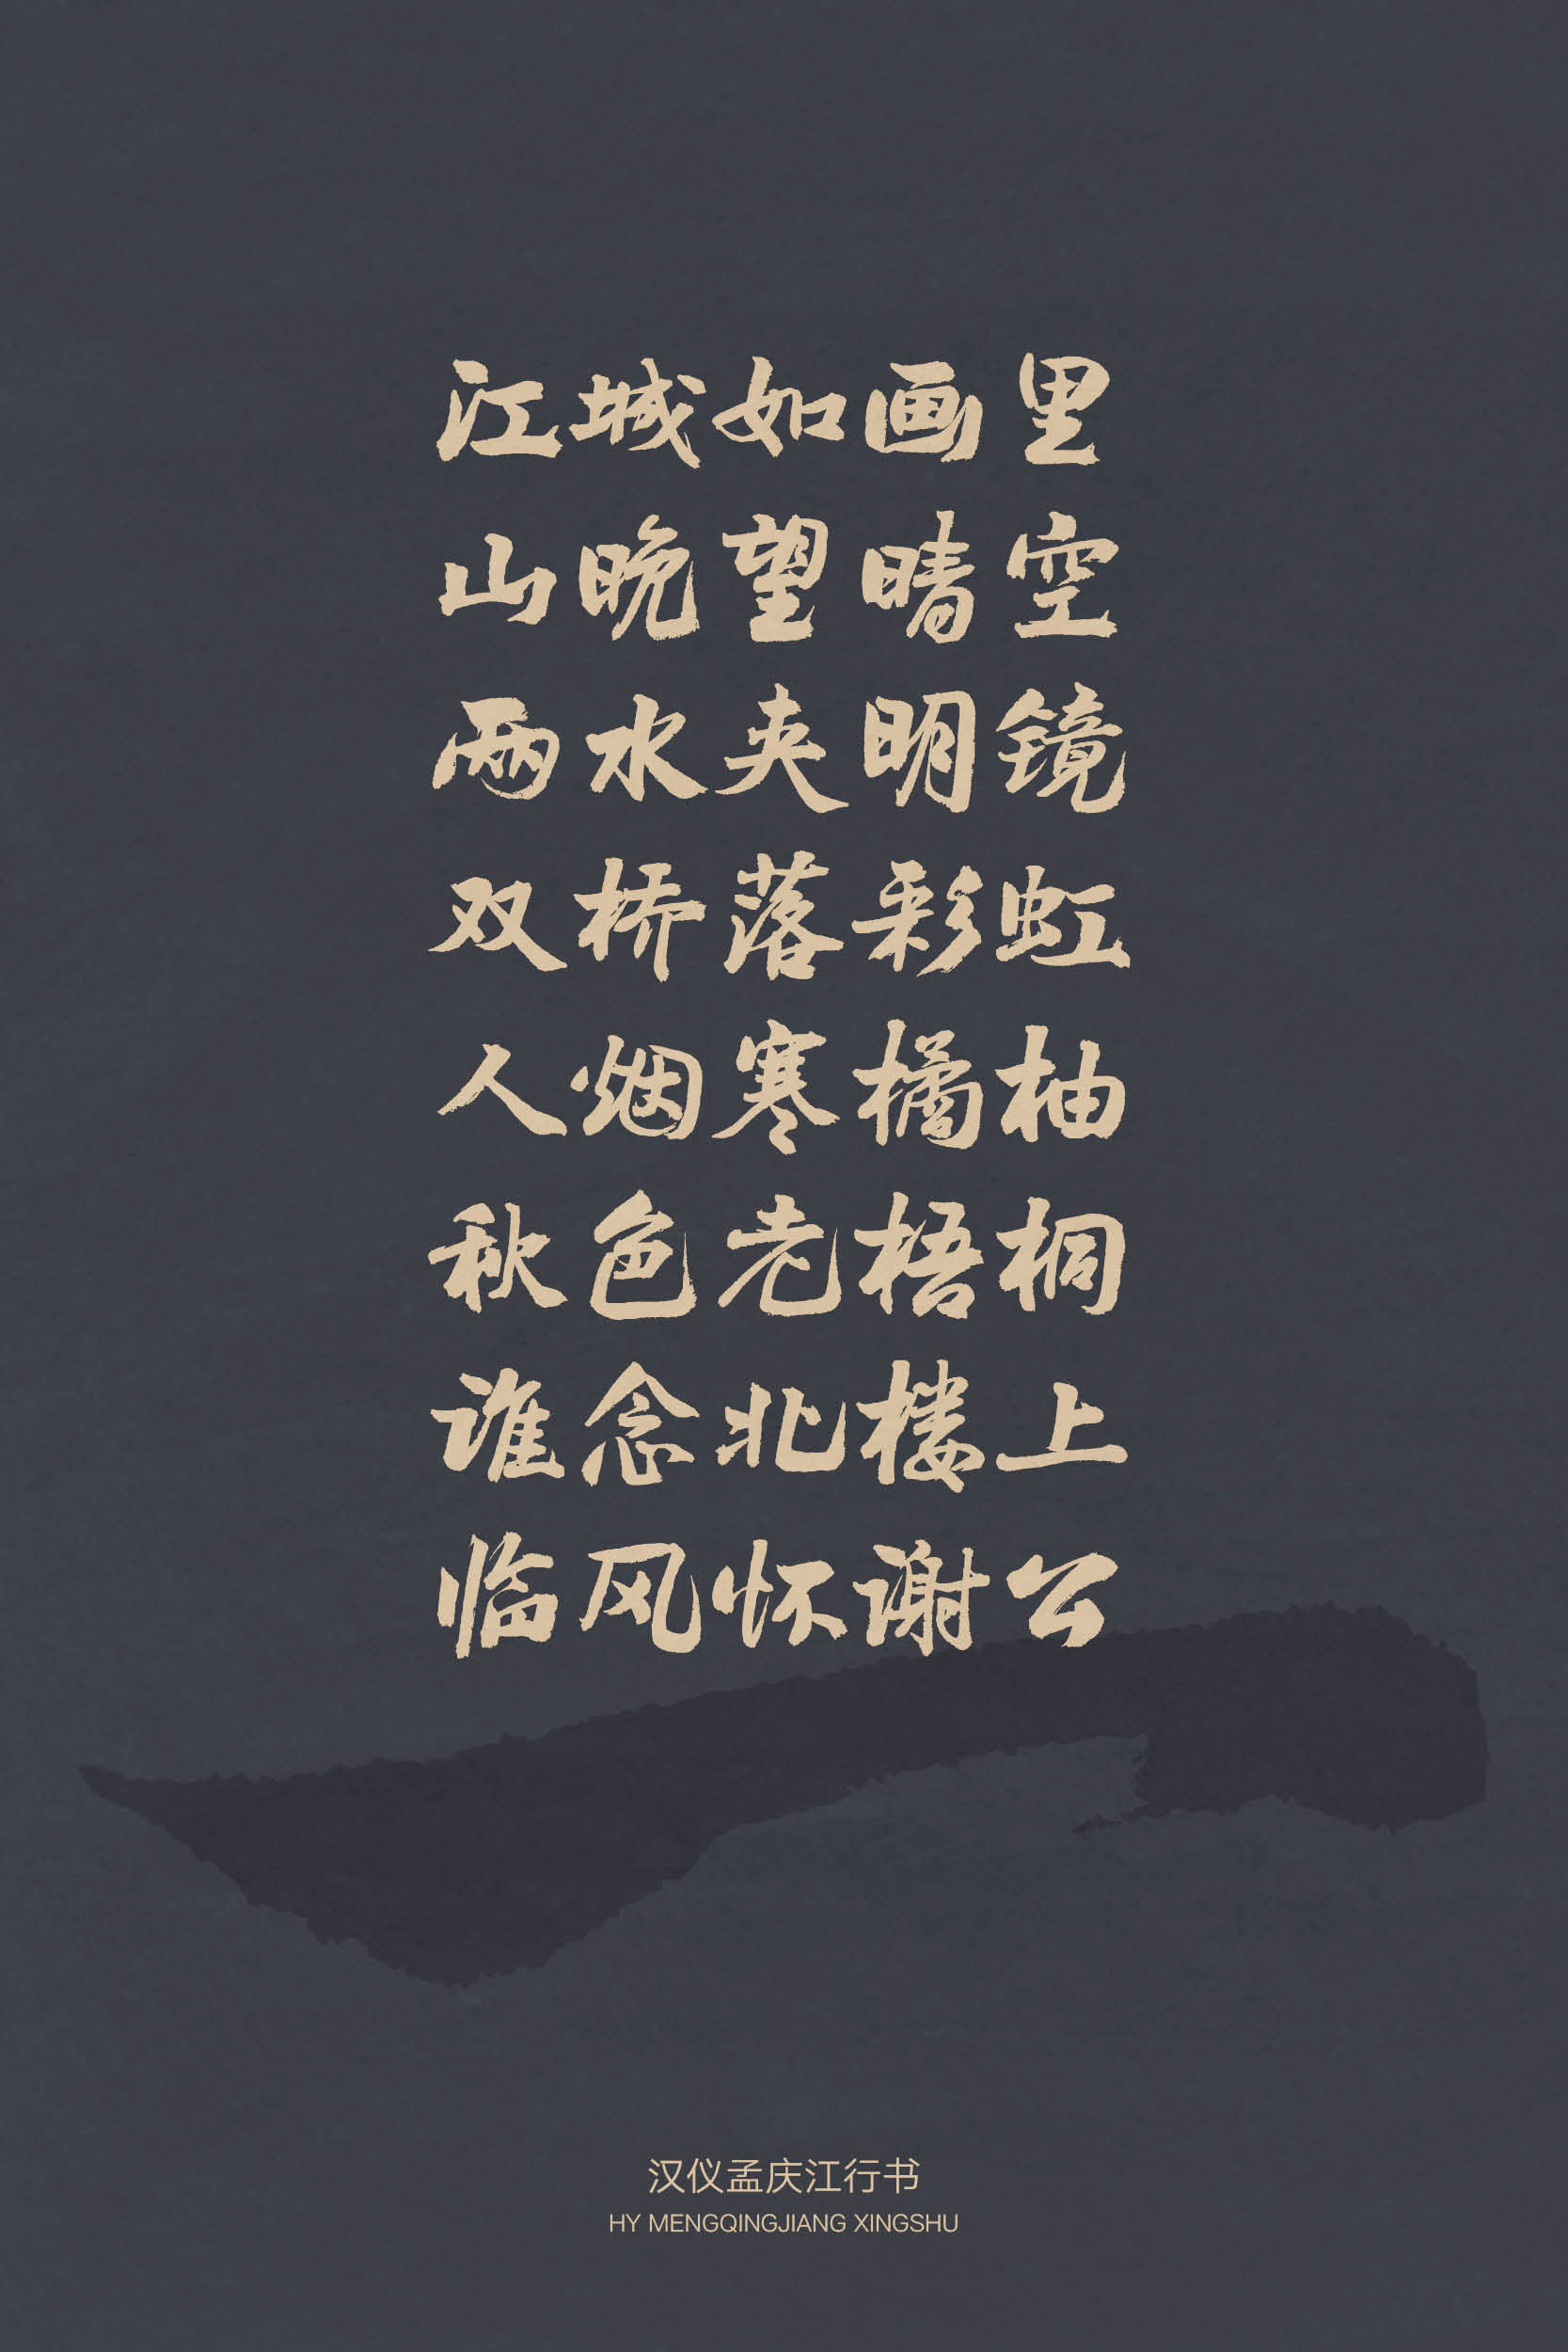 江城如画里
山晚望晴空
两水夹明镜
双桥落彩虹
人烟寒橘柚
秋色老梧桐
谁念北楼上
临风怀谢公
汉仪孟庆江行书
HY MENGQINGJIANG XINGSHU